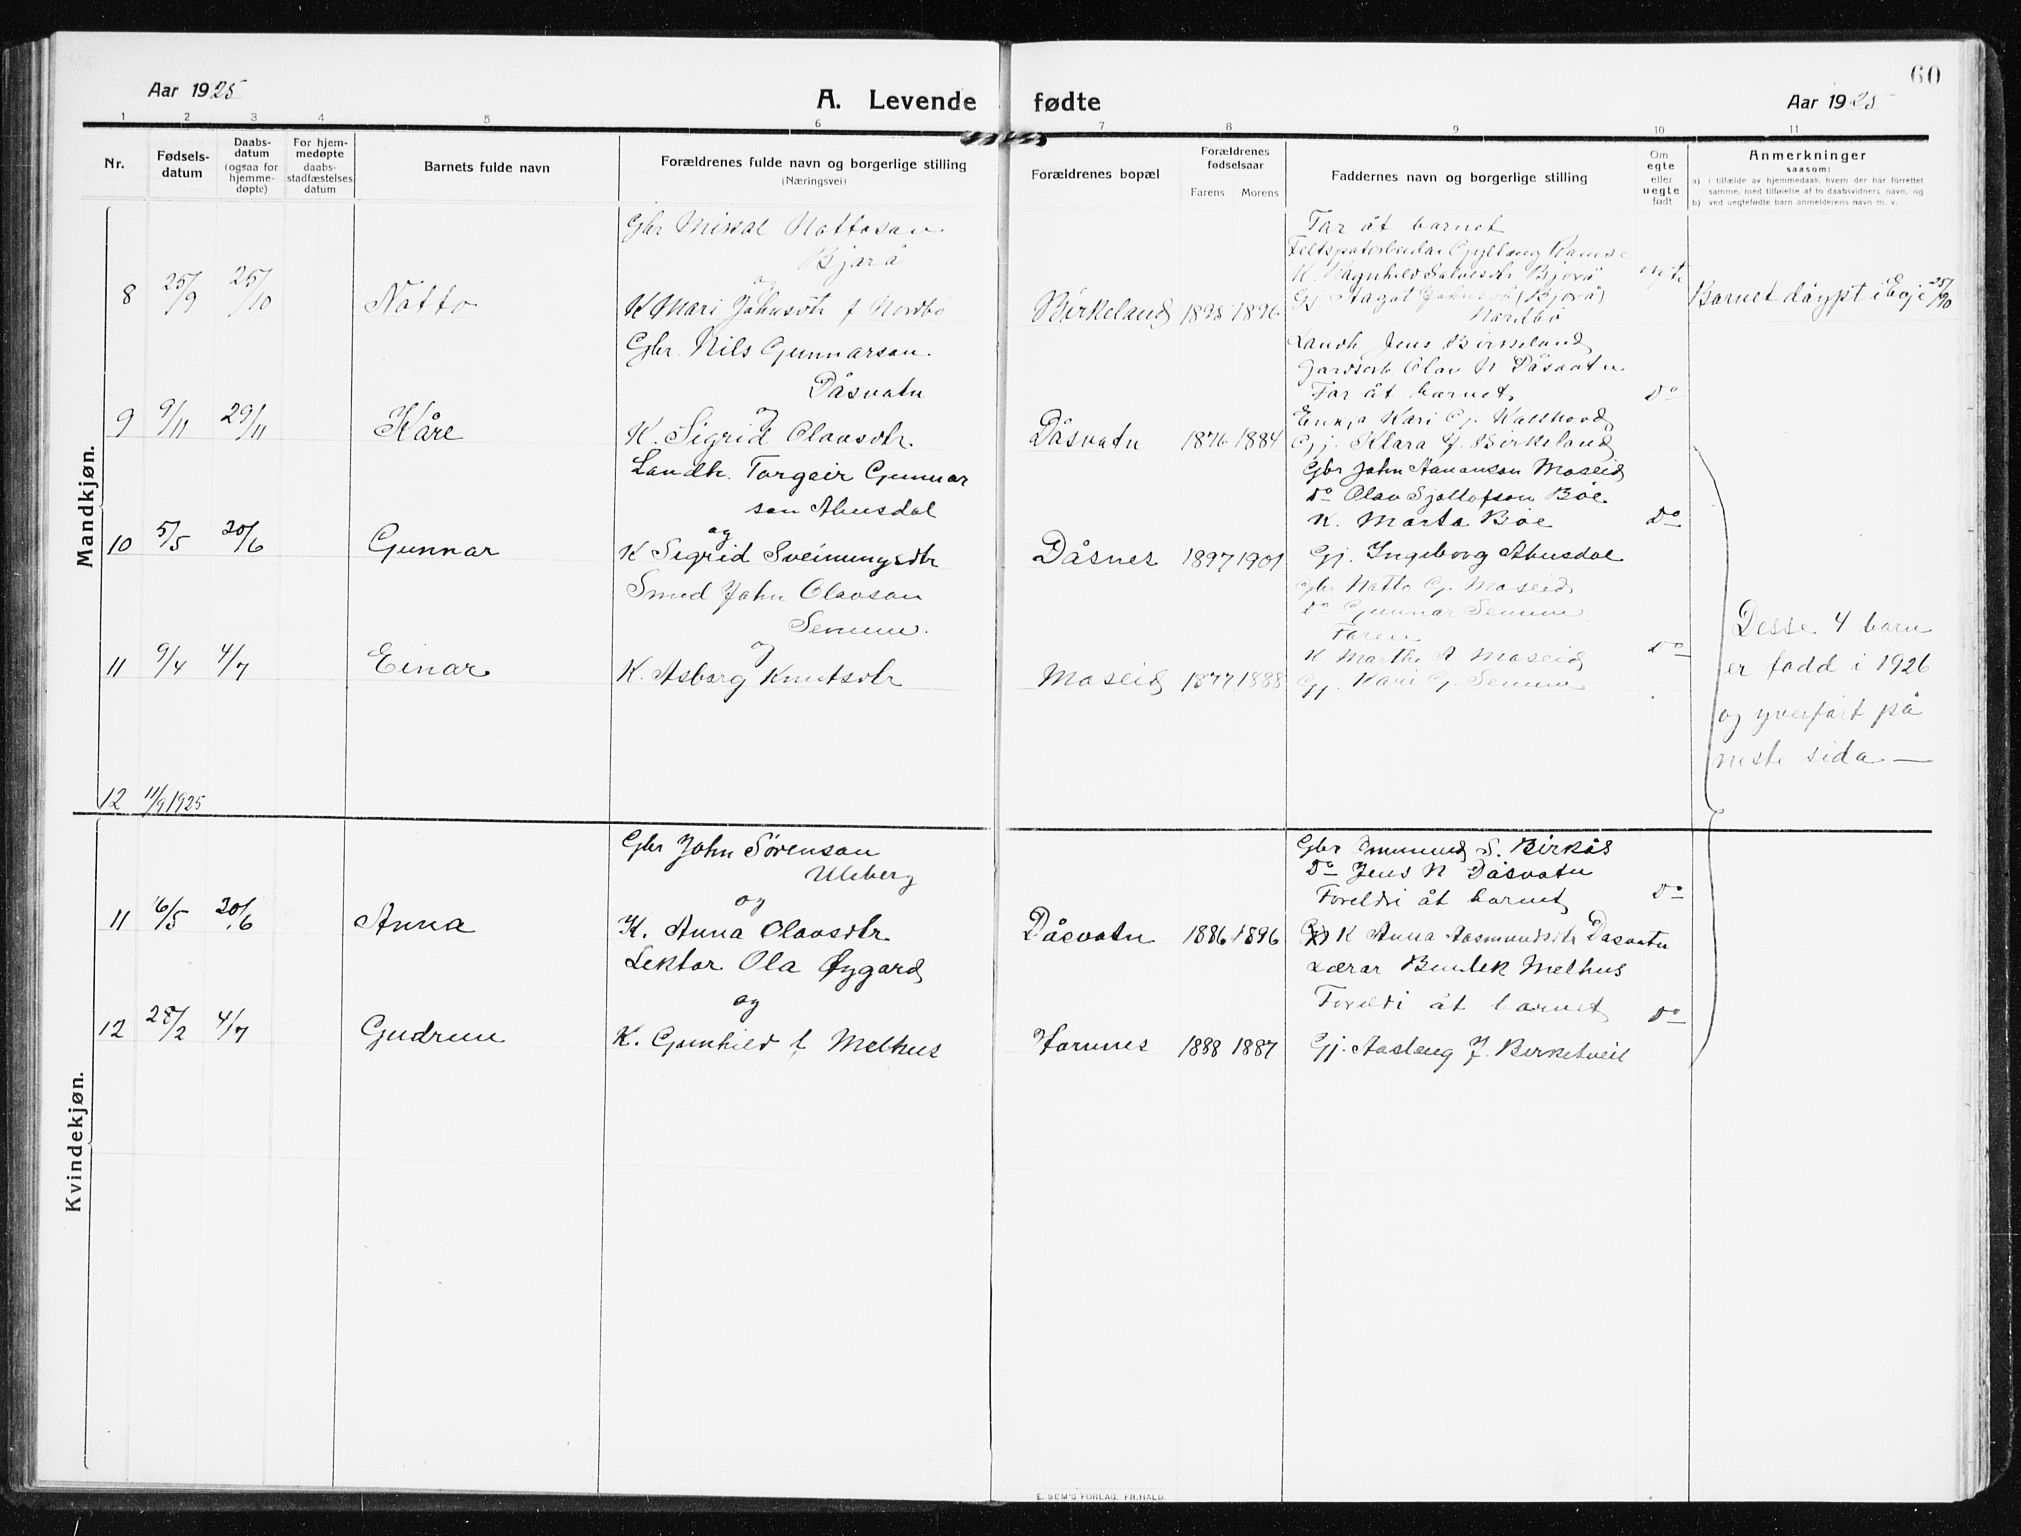 60
Aar 1925
A. Levende fødte
Aar 1925
1 2 3 4 5 6 7 8 9 10 11
Nr.
Fødsels-
datum
Daabs-
datum
(ogsaa for
hjemme-
døpte)
For hjem-
medøpte
daabs-
stadfæstelses
datum
Barnets fulde navn
Forældrenes fulde navn og borgerlige stilling
(Næringsvei)
Forældrenes bopæl
Forældrenes
fødselsaar
Farens Morens
Faddernes navn og borgerlige stilling
Om
egte
eller
uegte
født
Anmerkninger
saasom:
a) i tilfælde av hjemmedaab, hvem der har forrettet
samme, med tilføielse af to daabsvidners navn, og
b) ved uegtefødte barn anmelderens navn m. v.
Mandkjøn.
8 25/9 25/10 Natto
Gbr Missal Nattoson
Bjorå
og
K Mari Johnsdtr f Nordbø
Birkeland 1895 1896
Far åt barnet
Feltspatarbeidar Gyllaug Ramse
K. Ragnhild Salvesdtr Bjorå
Gj Aagot Johnsdtr (Bjorå)
Nordbø
egte
Barnet døypt i Evje 25/10
9 9/11 29/11 Kåre
Gbr. Nils Gunnarson
Dåsvatn
og
K. Sigrid Olavsdtr.
Dåsvatn 1876 1884
Landh. Jens Birkeland
Gardsarb Olav N. Dåsvatn
Far åt barnet
Enkja Kari Gj. Kallhovd
Gj. Klara J. Birkeland
Do
10 5/5 20/6 Gunnar
Landh. Torgeir Gunnar
son Ahusdal
og
K Sigrid Sveinungsdtr
Dåsnes 1897 1901
Gbr John Aananson Moseid
Do Olav Sjollofson Bøe
K. Marta Bøe
Gj. Ingeborg Ahusdal
Do
11 9/4 4/7 Einar
Smed John Olavson
Senum.
og
K. Asborg Knutsdtr
Moseid 1877 1888
Gbr Natto G. Moseid
Do Gunnar Senum
Faren
K Marthe A Moseid
Gj. Kari G. Senum
Do
Desse 4 born
er fødd i 1926
og yverført på
neste sida —
12 11/9 1925
Kvindekjøn.
11 16/5 20/6 Anna
Gbr John Sørenson
Uleberg
og
K. Anna Olavsdtr
Dåsvatn 1886 1896
Gbr Ommund S. Birkås
Do Jens N Dåsvatn
Foreldri åt barnet
K Anna Aasmundsdtr Dåsvatn
Do
12 28/2 4/7 Gudrun
Lektor Ola Øygard
og
K. Gunhild f Melhus
Hornnes 1888 1887
Lærar Bendek Melhus
Foreldri åt barnet
Gj. Aaslaug J. Birketveit
Do
E. SEM'S FORLAG, FR.HALD.